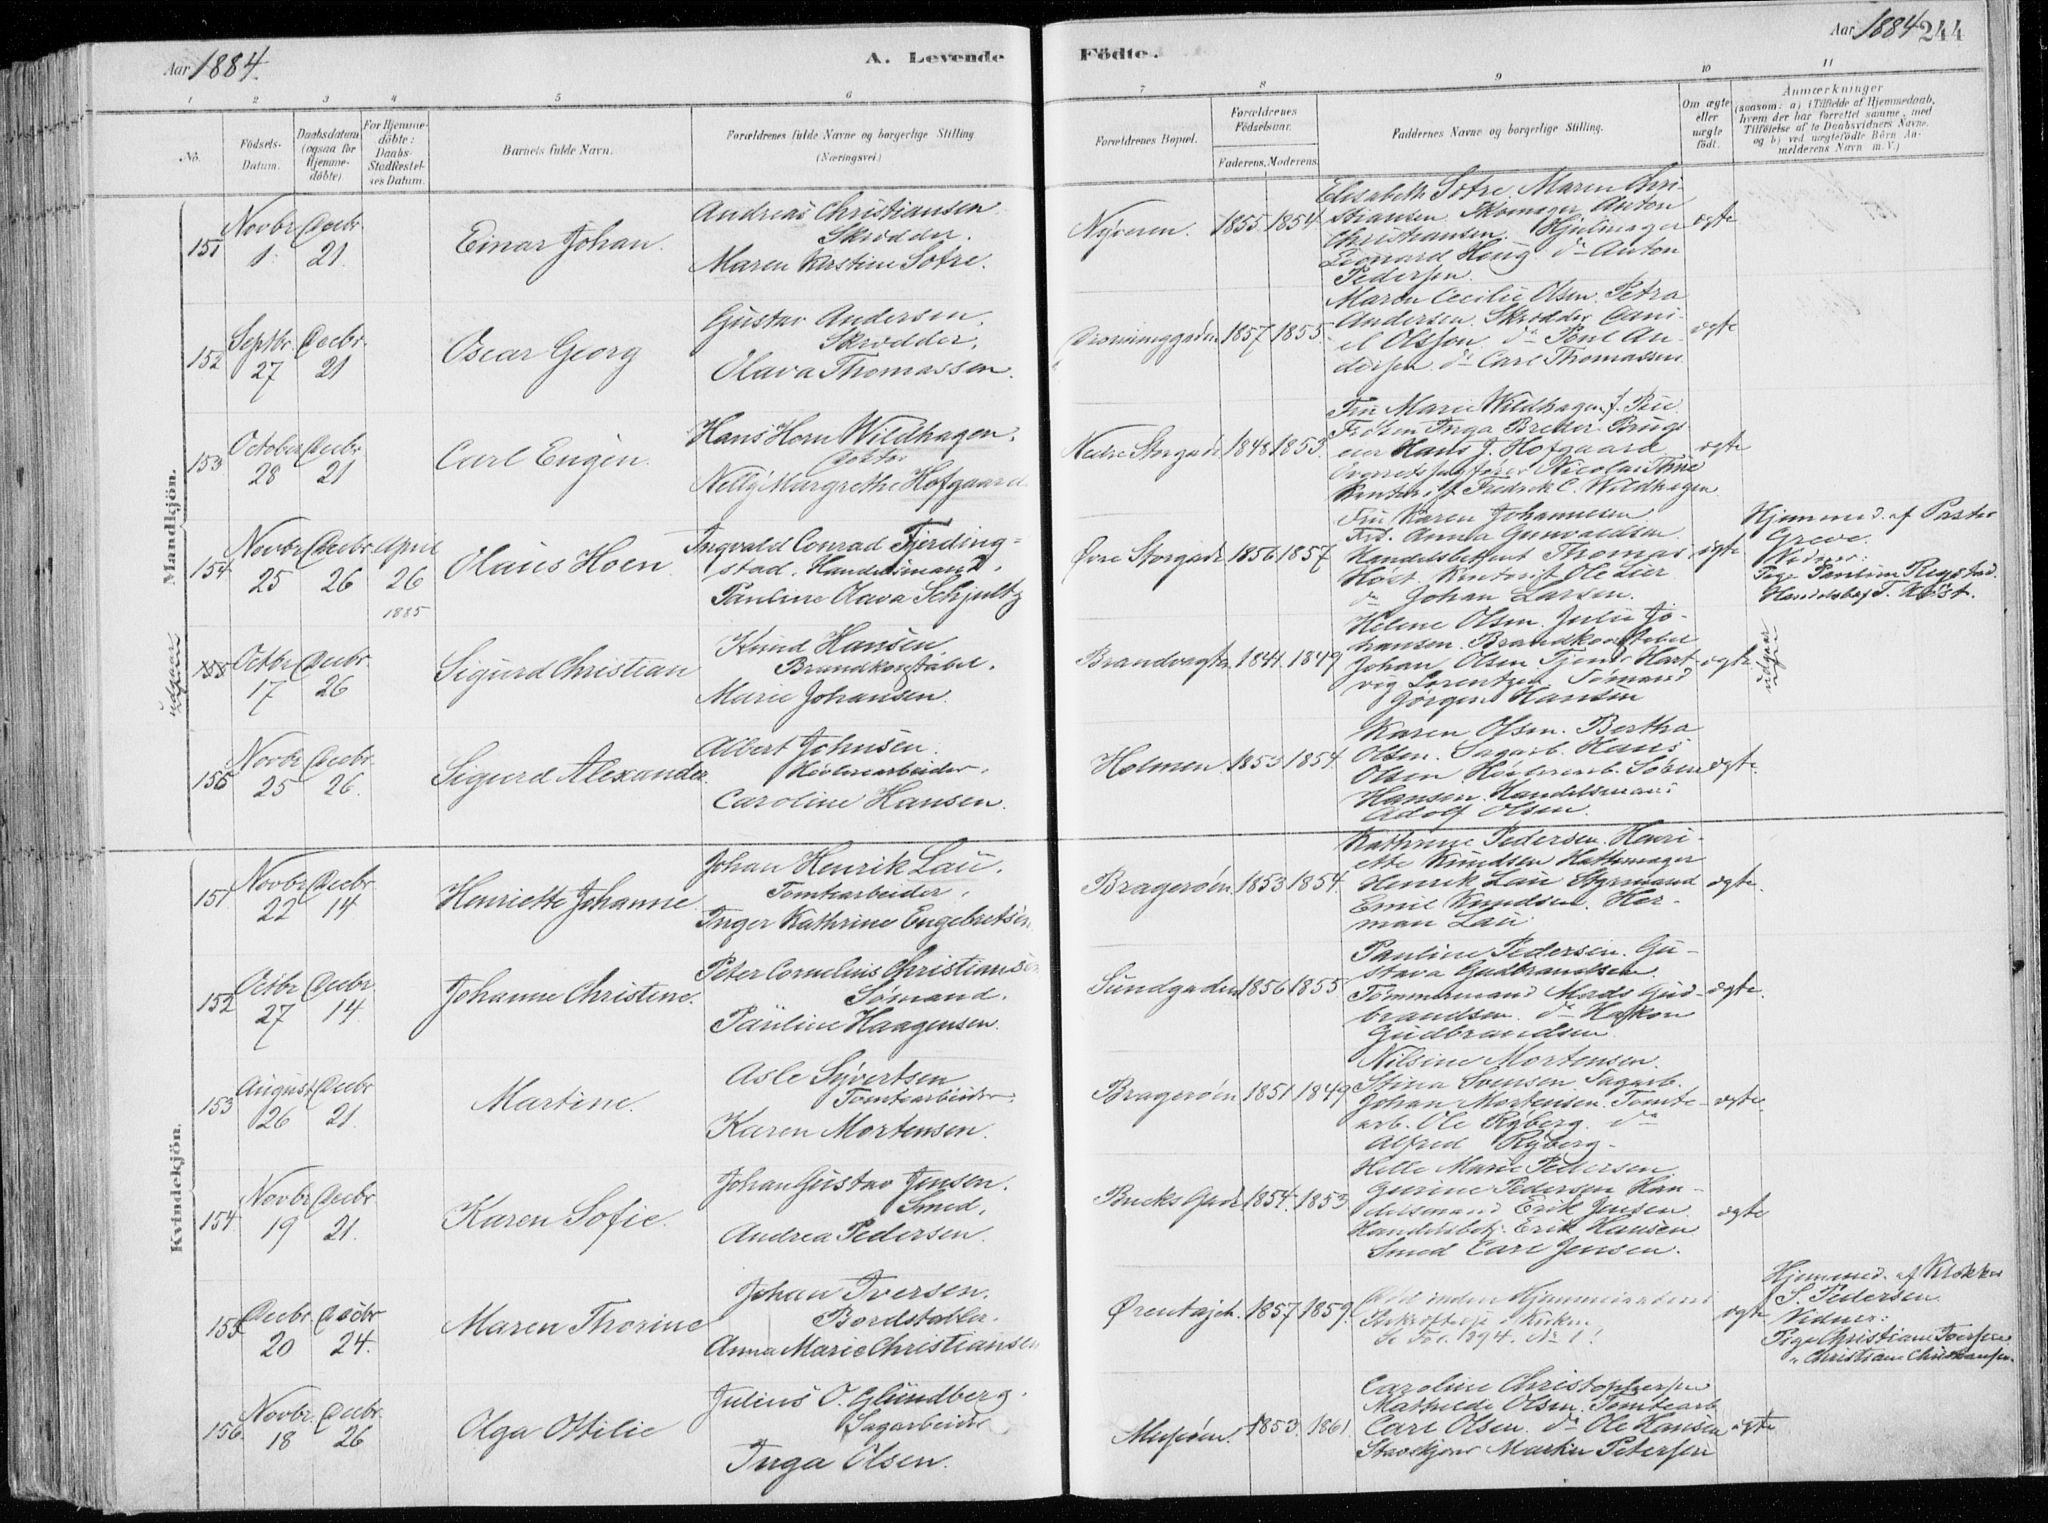 Aar 1884.
A. Levende
Födte.
Aar 1884
244
1
2
3
4
5
6
7
8
9
10
11
No.
Födsels-
Datum.
Daabsdatum
(ogsaa for
Hjemme-
døbte).
For Hjemme-
döbte:
Daabs-
Stadfæstel-
ses Datum.
Barnets fulde Navn.
Forældrenes fulde Navne og borgerlige Stilling
(Næringsvei.)
Forældrenes Bopæl.
Forældrenes
Födselsaar.
Faderens.
Moderens.
Faddernes Navne og borgerlige Stilling.
Om ægte
eller
uægte
født.
Anmærkninger
(saasom: a) i Tilfælde af Hjemmedaab,
hvem der har forrettet samme, med
Tilföielse af to Daabsvidners Navne.
og b) ved uægtefödte Börn An-
melderens Navn m.V.)
Mandkjön.
151
Novbr
1.
Decbr.
21.
Einar Johan.
Andreas Christiansen.
Skrædder.
Maren Kirstine Sotre.
Nyveien.
1855.
1854
Elisabeth Sotre. Maren Chri-
stiansen. Skomager Anton
Christiansen. Hjulmager
Leonard Houg. do Anton
Pedersen.
ægte
152
Septbr.
27
Decbr.
21
Oscar Georg
Gustav Andersen.
Skrædder.
Olava Thomassen.
Dronninggaden
1857
1855.
Maren Cecilie Olsen. Petra
Andersen. Skrædder Dani-
el Olsen. do Poul An-
dersen. do Carl Thomassen
ægte
153
October
28
Decbr
21
Carl Eugén.
Hans Horn Wildhagen.
Doktor
Nelly Margrethe Hofgaard
Nedre Storgade
1848.
1853.
Fru Marie Wildhagen f. Peu
Frøken Inga Bretter. Brugs
eier Hans J. Hofgaard
Overretssagfører Nicolai Thne
Kontorist Fredrik C. Wildhagen
ægte
154
Novbr
25
Decbr
26
April
26
1885
Olaus Hoen
Ingvald Conrad Fjerding-
stad. Handelsmand.
Pauline Olava Schjultz
Øvre Storgade
1856
1857
Fru Karen Johannesen
Frk. Anna Gunvaldsen
Handelsbetjent Thomas
Høst. Kontorist Ole Lier
do Johan Larsen.
ægte
Hjemmed. af Pastor
Greve
Vidner:
Pige Pauline Regstad.
Handelsbetj. T. Høst.
udgaar
igjen
155
Octbr
17
Decbr.
26
Sigurd Christian
Knud Hansen.
Brandkonstabel.
Marie Johansen.
Brandvagten
1841.
1849
Helene Olsen. Julie Jo-
hansen. Brandkonstabel
Johan Olsen. Tjener Hart
vig Lorentzen. Sømand
Jørgen Hansen
ægte
udgaar
igjen
156
Novbr
25
Decbr.
26.
Sigurd Alexander
Albert Johnsen.
Høvleriarbeider.
Caroline Hansen.
Holmen
1853
1854
Karen Olsen. Bertha
Olsen. Sagarb. Hans
Olsen. Høvleriarb. Søren
Hansen. Handelsmand
Adolf Olsen.
ægte.
Kvindekjön.
151
Novbr
22
Decbr.
14
Henriette Johanne
Johan Henrik Lau.
Tomtearbeider.
Inger Kathrine Engebretsen
Bragerøen
1853
1854
Kathrine Pedersen. Henri-
ette Knudsen. Hattemager
Henrik Lau. Styrmand
Emil Knudsen. Her-
man Lau
ægte.
152
Octbr
27
Decbr.
14.
Johanne Christine.
Peter Cornelius Christiansen
Sømand.
Pauline Haagensen.
Sundgaden
1856
1855
Pauline Pedersen. Gu-
stava Gudbrandsen.
Tømmermand Mads Gud-
brandsen. do Haakon
Gudbrandsen
ægte.
153
August
26
Decbr
21.
Martine.
Asle Syvertsen
Tomtearbeider.
Karen Mortensen.
Bragerøen
1851
1849
Nilsine Mortensen.
Stina Svensen. Sagarb.
Johan Mortensen. Tomte-
arb. Ole Ryberg. do
Alfred Ryberg.
ægte.
154
Novbr
19
Decbr
21.
Karen Sofie.
Johan Gustav Jensen.
Smed.
Andrea Pedersen.
Bucks Gade
1854.
1853
Helle Marie Pedersen.
Gurine Pedersen. Han-
delsmand Erik Jensen
Handelsbetj. Erik Hansen
Smed Carl Jensen.
ægte
155
Decbr
20
Decbr
24.
Maren Thorine
Johan Iversen.
Bordstabler.
Anna Marie Christiansen
Ørentajet.
1857
1859.
Død inden Hjemmedaabens
Bekræftelse i Kirken
Se For. 1894. No 1!
ægte
Hjemmed. af Klokker
S. Pedersen
Vidner:
Pige Christiane Iversen
" Christiane Christiansen.
156.
Novbr.
18
Decbr.
26
Olga Ottilie
Julius O. Glundberg.
Sagarbeider
Inga Olsen.
1853.
1861
Caroline Christophersen
Mathilde Olsen. Tomtearb.
Carl Olsen. do Ole Hansen
Martin Petersen
ægte